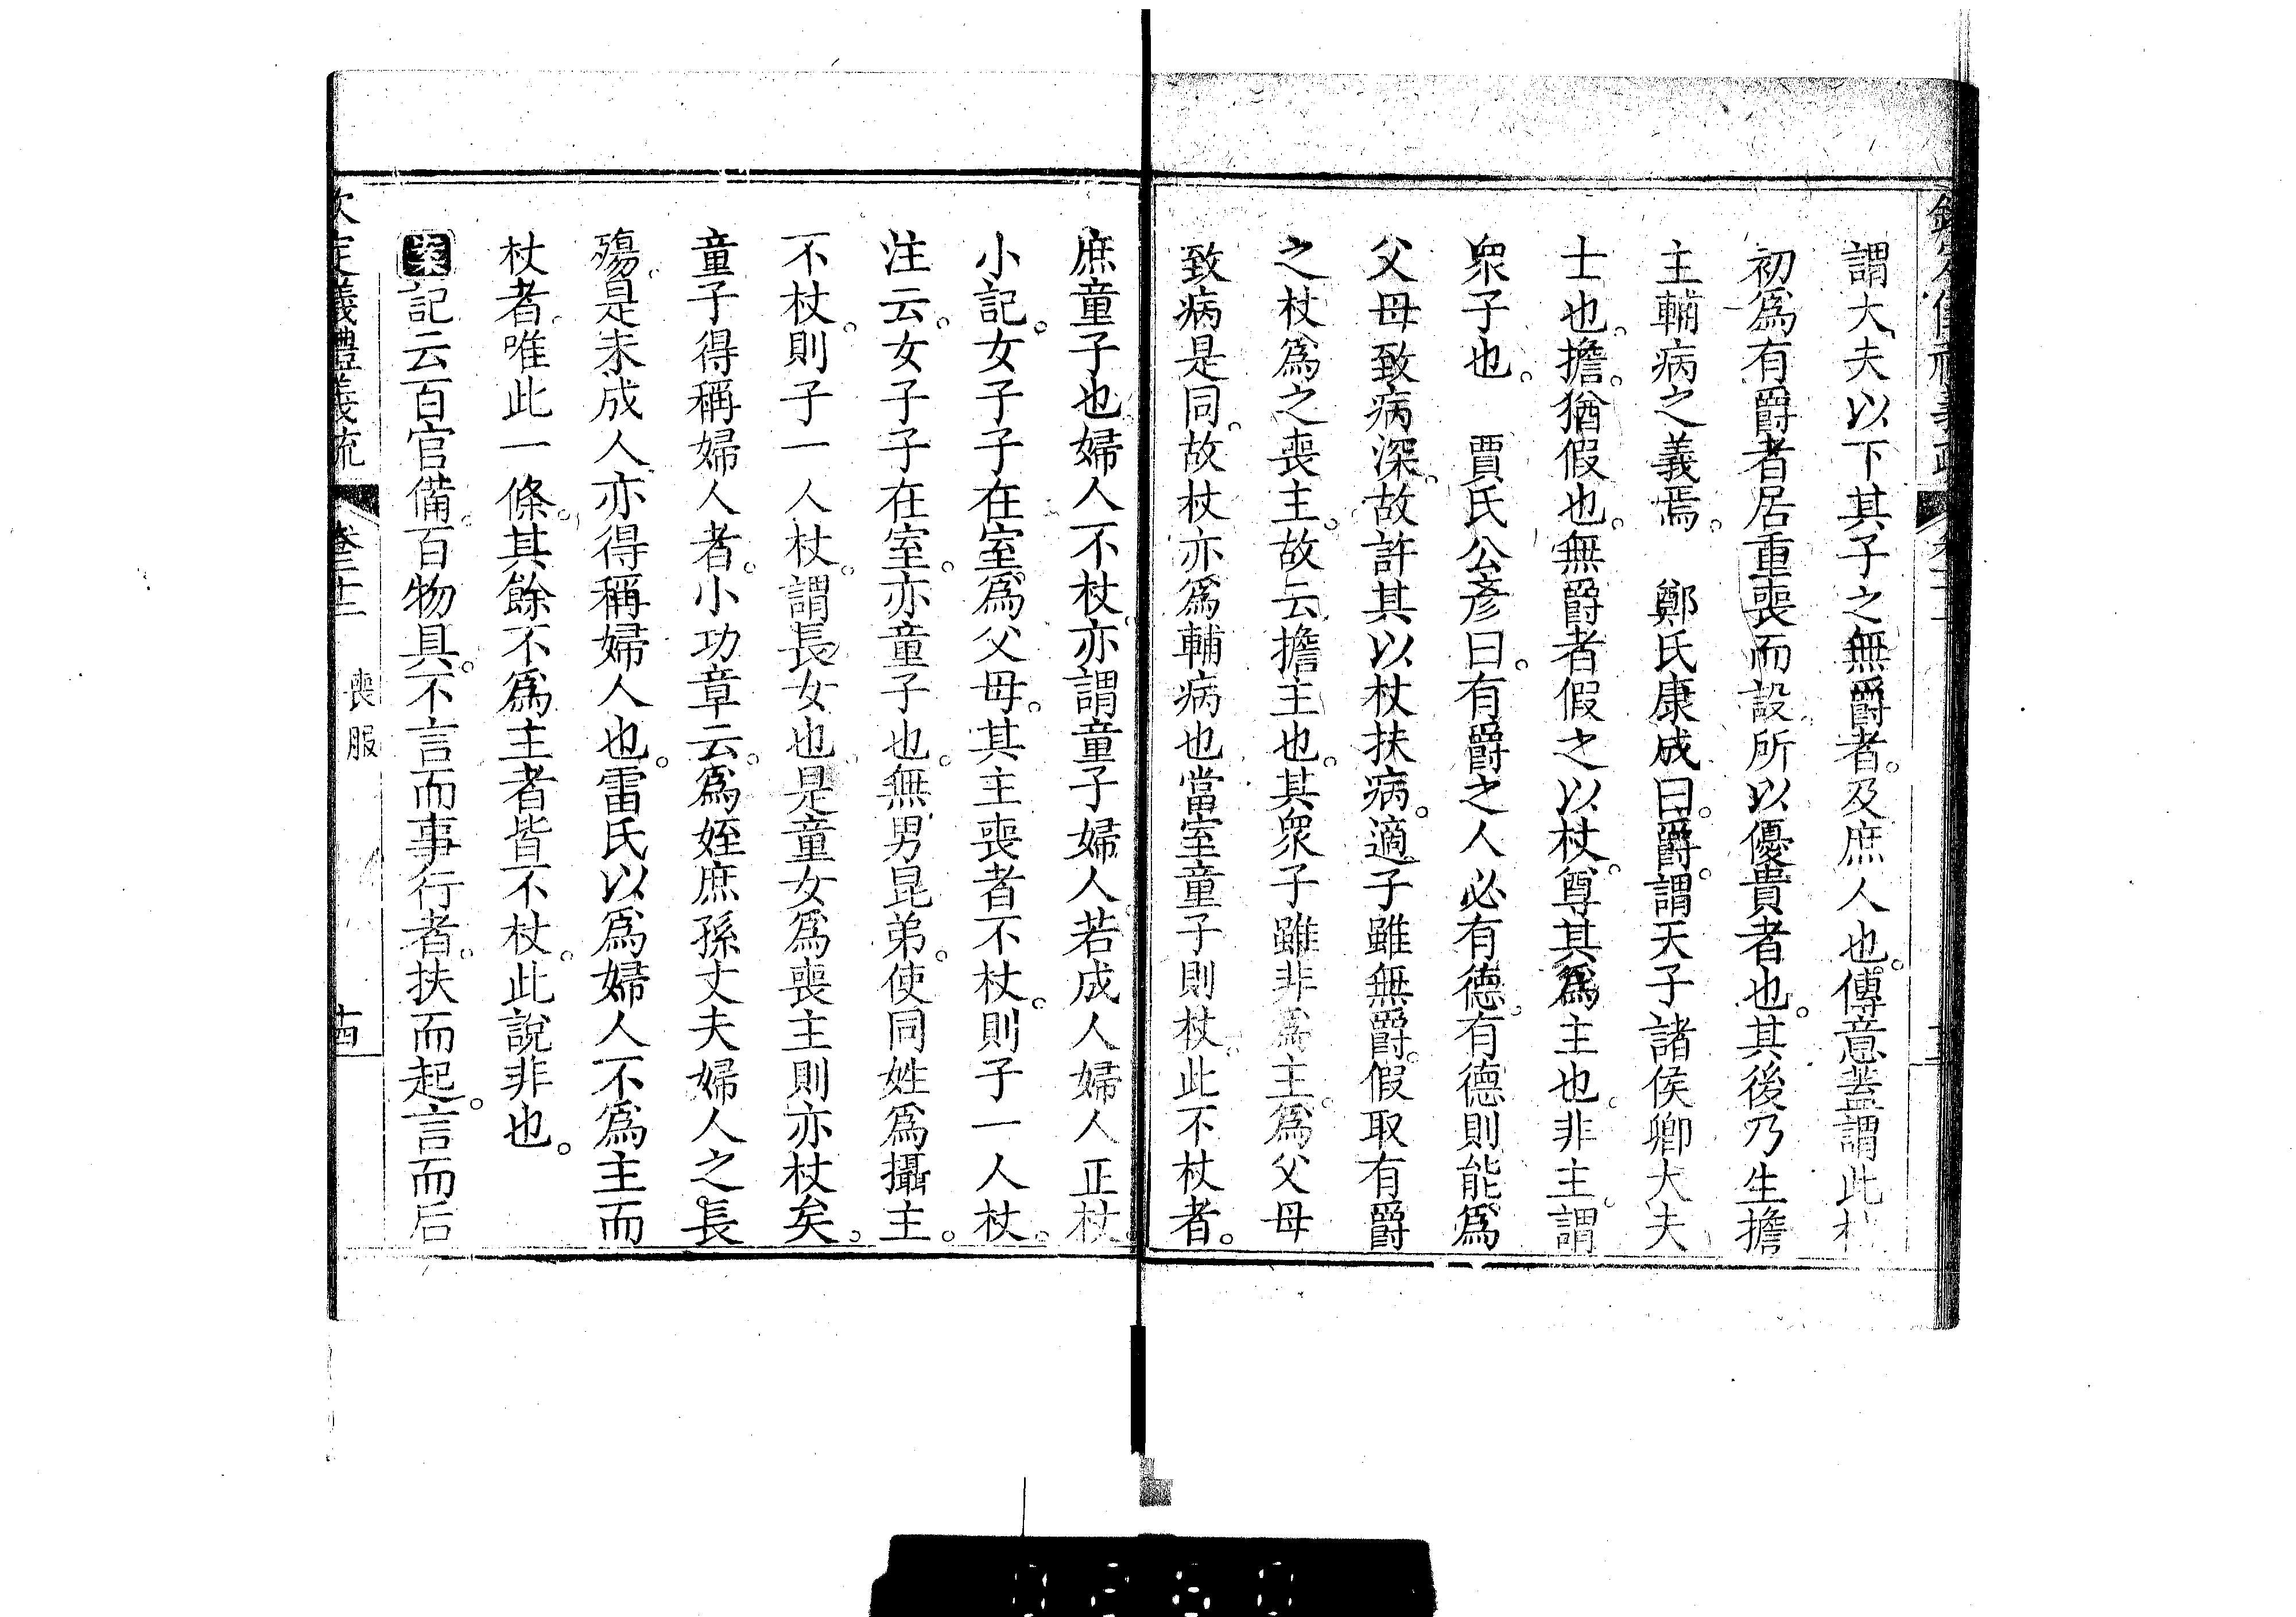 謂大夫以下其子之無爵者及庶人也。傳意蓋謂此杖
初爲有爵者居重喪而設所以優貴者也。其後乃生擔
主輔病之義焉。 鄭氏康成曰。爵。謂天子諸侯卿大夫
士也。擔。猶假也。無爵者假之以杖。尊其爲主也。非主。謂
衆子也。 賈氏公彥曰。有爵之人必有德。有德則能爲
父母致病深。故許其以杖扶病。適子雖無爵。假取有爵
之杖爲之喪主。故云擔主也。其衆子雖非爲主。爲父母
致病是同。故杖亦爲輔病也當室童子則杖。此不杖者。
庶童子也。婦人不杖。亦謂童子婦人。若成人婦人正杖。
小記。女子子在室。爲父母。其主喪者不杖。則子一人杖。
注云。女子子在室。亦童子也。無男昆弟。使同姓爲攝主。
不杖。則子一人杖。謂長女也。是童女爲喪主則亦杖矣。
童子得稱婦人者。小功章云。爲姪庶孫丈夫婦人之長
殤。是未成人。亦得稱婦人也。雷氏以爲婦人不爲主而
杖者。唯此一條。其餘不爲主者皆不杖。此說非也。
案記云百官備。百物具。不言而事行者。扶而起。言而后
喪服